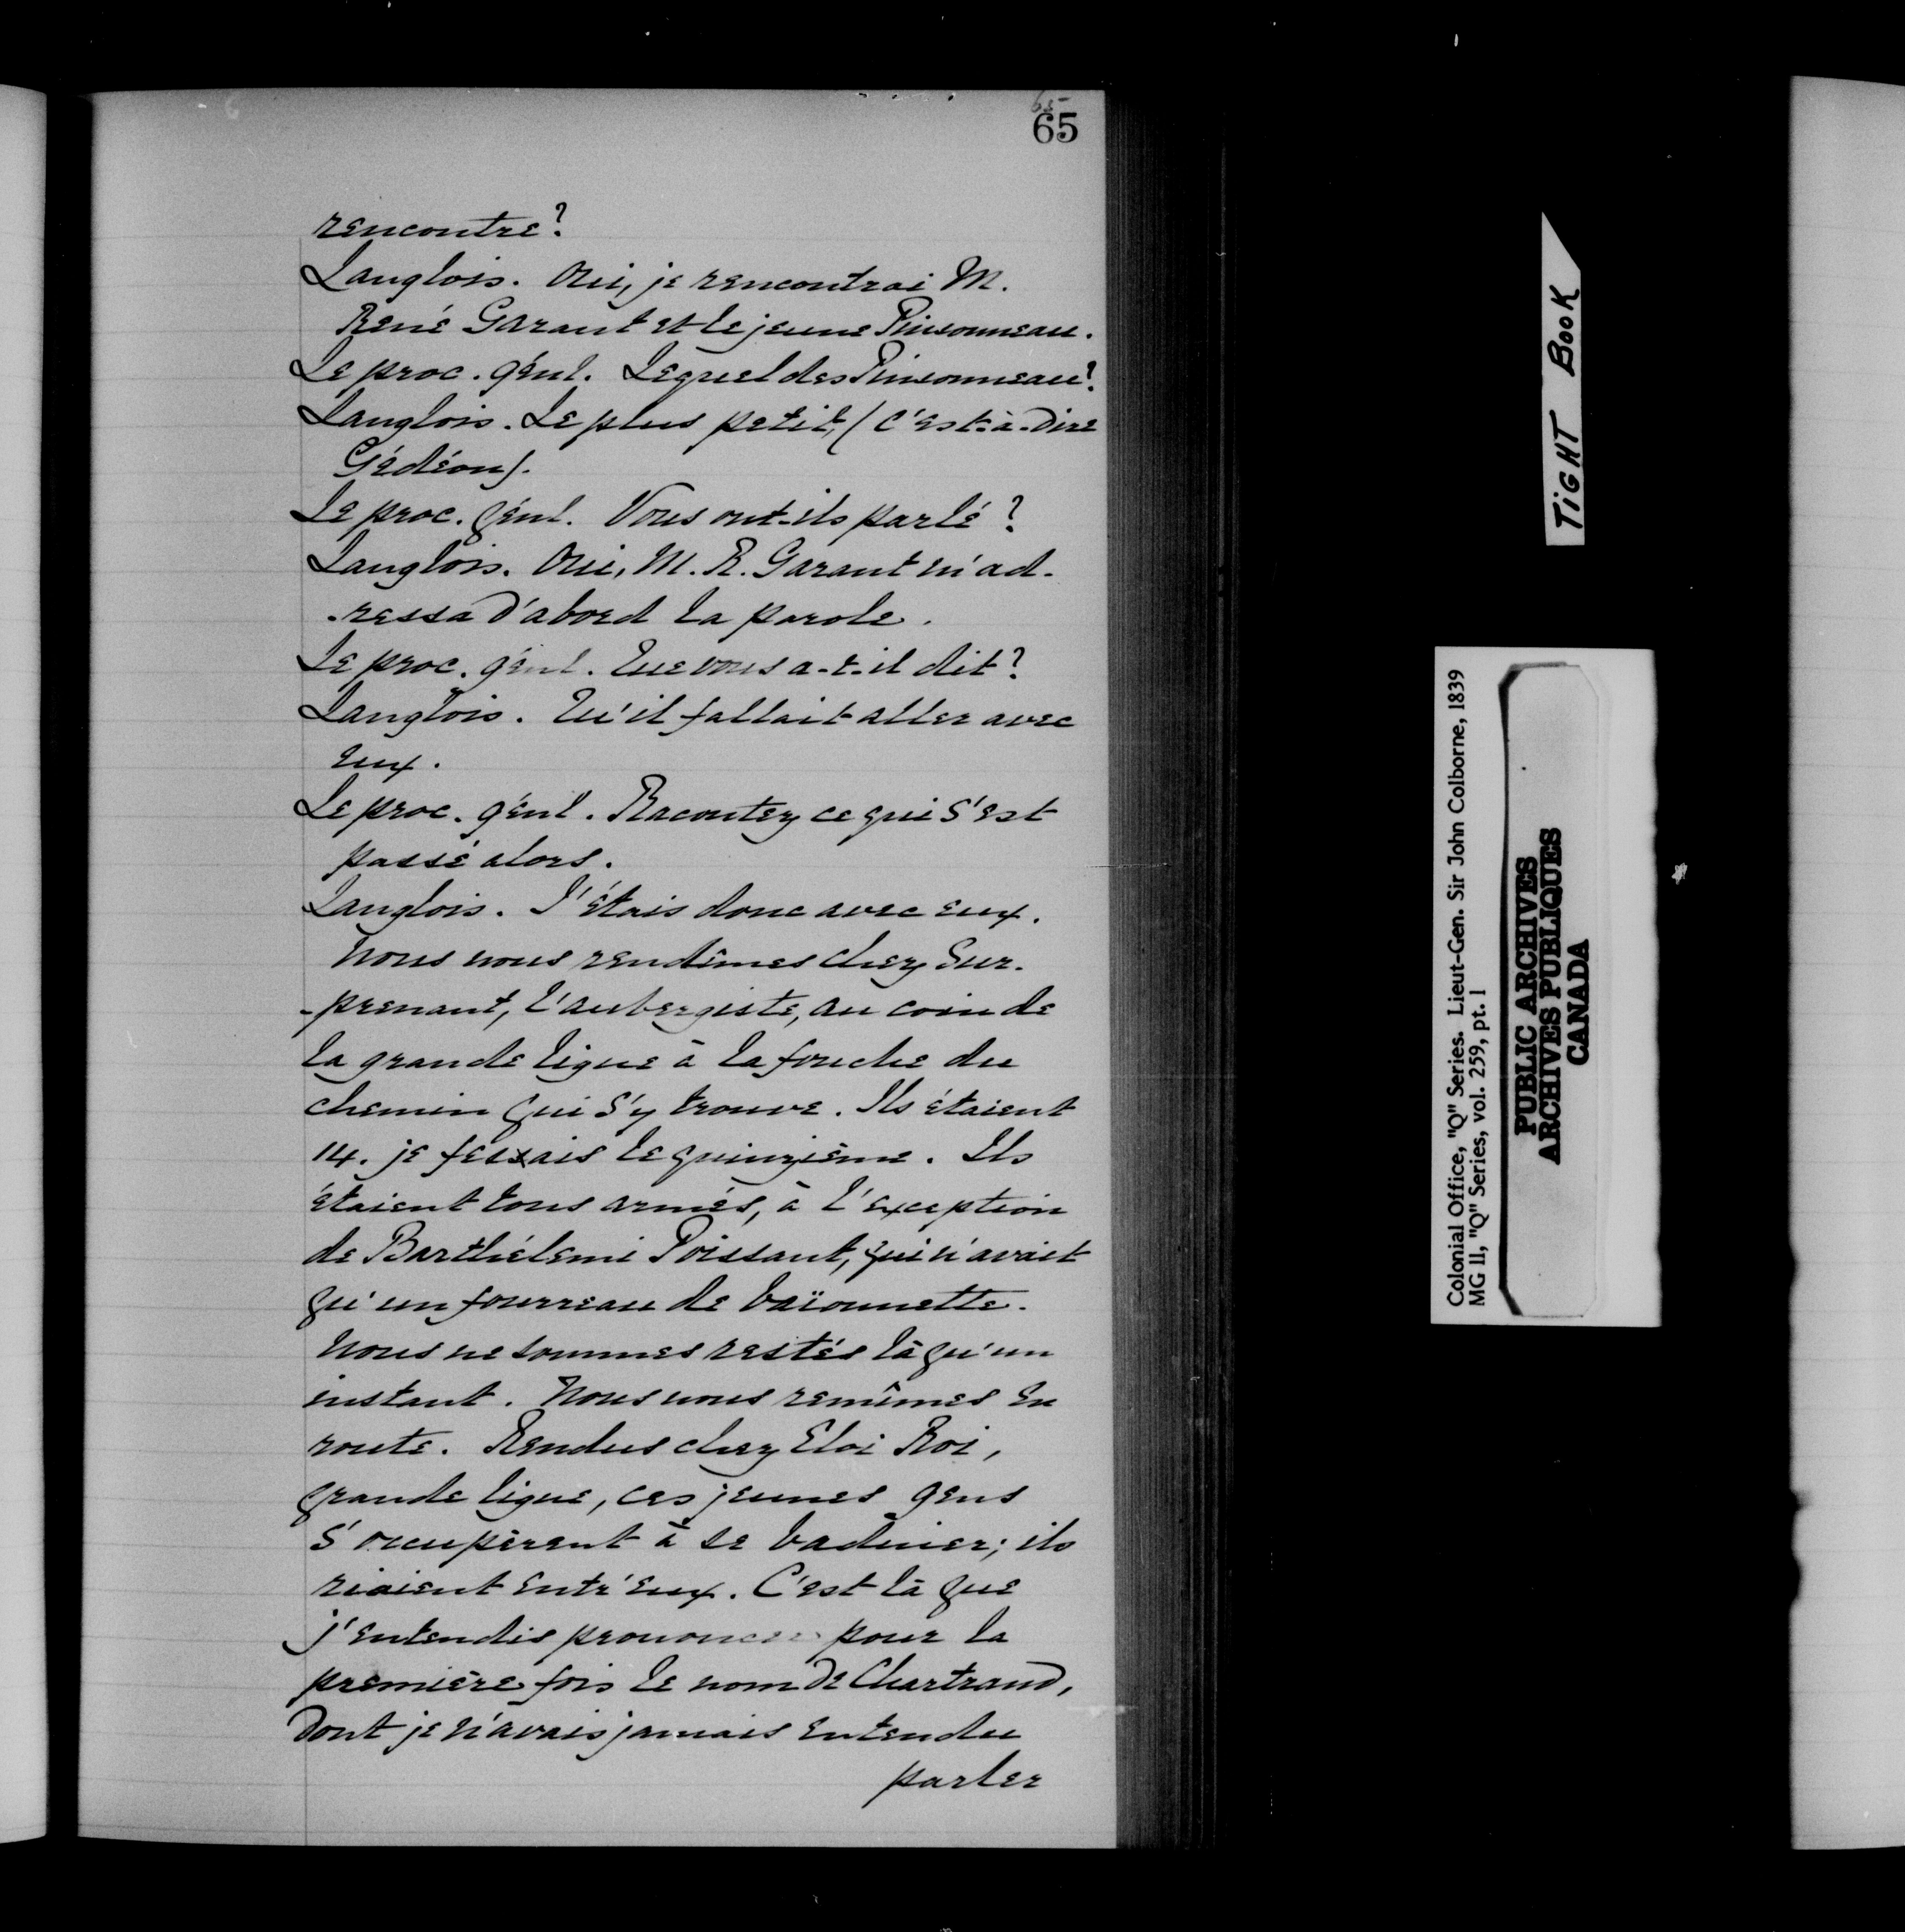 65
65
rencontre?
Langlois. Oui, je rencontrai M.
René Garant et le jeune Pinsonneau.
Le proc. génl. Lequel des Pinsonneau?
Langlois. Le plus petit, (c'est-à-dire
Gédéon).
Le proc. génl. Vous ont-ils parlé?
Langlois. Oui, M. R. Garant m'ad-
-ressa d'abord la parole.
Le proc. génl. Que vous a-t-il dit?
Langlois. Qu'il fallait aller avec
eux.
Le proc. génl. Racontez ce qui s'est
passé alors.
Langlois. J'étais donc avec eux.
Nous nous rendîmes chez Sur-
-prenant, l'aubergiste, au coin de
la grande ligne à la fouche du
chemin qui s'y trouve. Ils étaient
14. je fesais le quinzième. Ils
étaient tous armés, à l'exception
de Barthélemi Poissant, qui n'avait
qu'un fourreau de baïonnette.
Nous ne sommes restés là qu'un
instant. Nous nous remîmes en
route. Rendus chez Eloi Roi,
grande ligne, ces jeunes gens
s'occupèrent à se badiner; ils
riaient entr'eux. C'est là que
j'entendis prononcer pour la
première fois le nom de Chartrand,
dont je n'avais jamais entendu
parler
TIGHT BOOK
Colonial Office, "Q" Series. Lieut-Gen. Sir John Colborne, 1839
MG 11, "Q" Series, vol. 259, pt. 1
PUBLIC ARCHIVES
ARCHIVES PUBLIQUES
CANADA